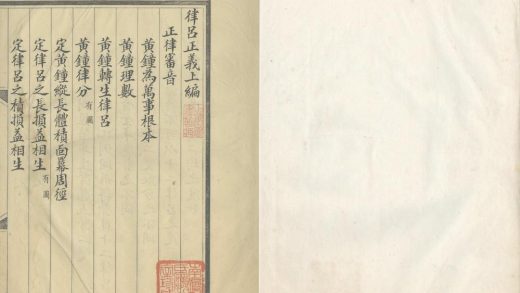 律呂正義上編
正律審音
黃鍾為萬事根本
黃鍾理數
黃鍾轉生律呂
黃鍾律分有圖
定黃鍾縱長體積面冪周徑
定律呂之長損益相生有圖
定律呂之積損益相生